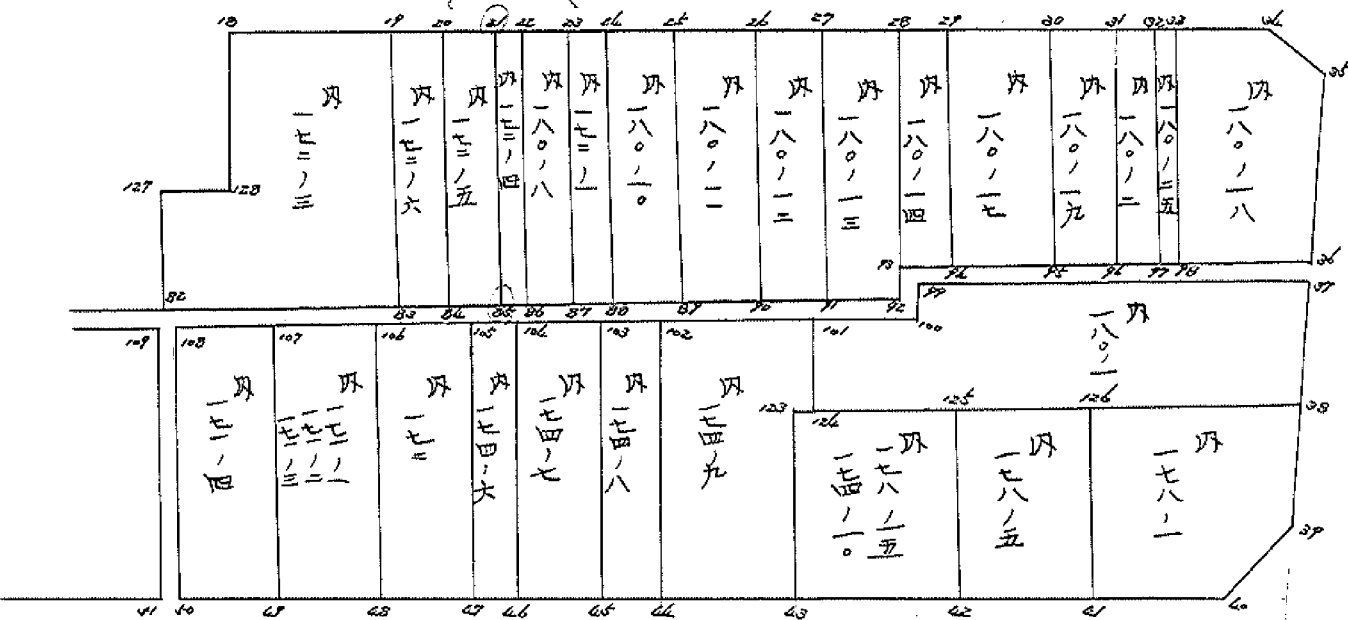 18 19 20 21 22 23 24 25 26 27 28 29 30 31 32 33 34
35
内 一七三ノ三
内 一七三ノ六
内 一七三ノ五
内 一七三ノ四
内 一八〇ノ八
内 一七三ノ一
内 一八〇ノ一〇
内 一八〇ノ一一
内 一八〇ノ一二
内 一八〇ノ一三
内 一八〇ノ一四
内 一八〇ノ一七
内 一八〇ノ一九
内 一八〇ノ二
内 一八〇ノ二五
内 一八〇ノ一八
127 128
93 94 95 96 97 98 36
82 83 84 85 86 87 88 89 90 91 92 99 37
109 108 107 106 105 104 103 102 101 100
内 一八〇ノ一
内 一七一ノ四
内 一七一ノ一
一七一ノ二
一七一ノ三
内 一七二
内 一七四ノ六
内 一七四ノ七
内 一七四ノ八
内 一七四ノ九
123 124 125 126 38
内 一七八ノ一五
一七四ノ一〇
内 一七八ノ五
内 一七八ノ一
39
50 49 48 47 46 45 44 43 42 41 40